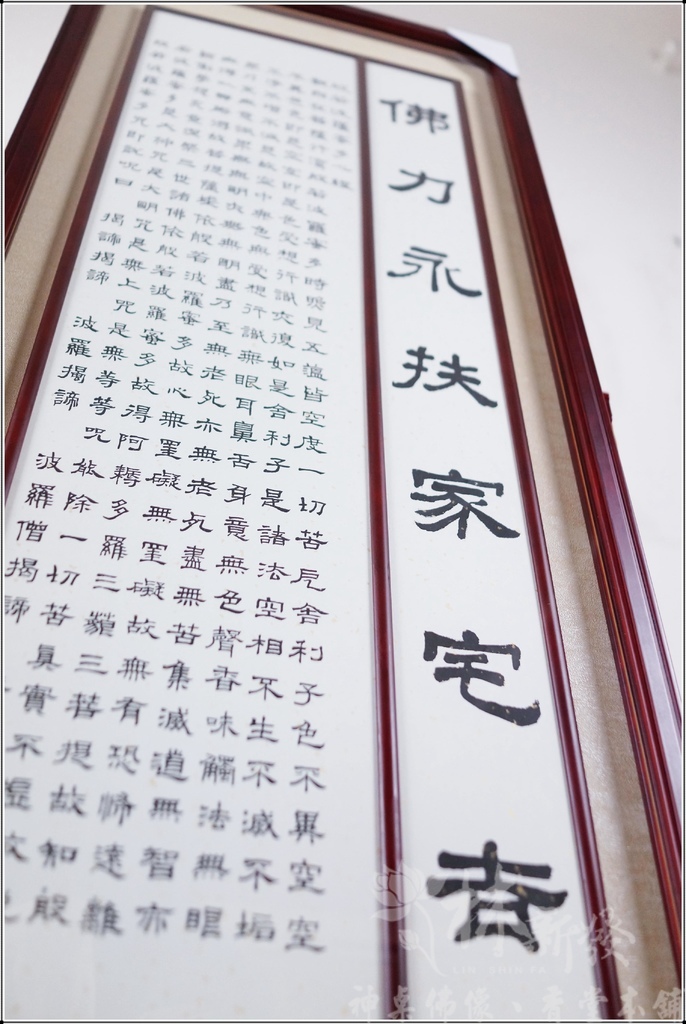 佛力永扶家宅吉
般若波羅蜜多心經
觀自在菩薩行深般若波羅蜜多時照見五蘊皆空度一切苦厄舍利子色不異空空
不異色色即是空空即是色受想行識亦復如是舍利子是諸法空相不生不滅不垢
不淨不增不減是故空中無色無受想行識無眼耳鼻舌身意無色聲香味觸法無眼
界乃至無意識界無無明亦無無明盡乃至無老死亦無老死盡無苦集滅道無智亦
無得以無所得故菩提薩埵依般若波羅蜜多故心無罣礙無罣礙故無有恐怖遠離
顛倒夢想究竟涅槃三世諸佛依般若波羅蜜多故得阿耨多羅三藐三菩提故知般
若波羅蜜多是大神咒是大明咒是無上咒是無等等咒能除一切苦真實不虛故
般若波羅蜜多咒即說咒曰 揭諦揭諦 波羅揭諦 波羅僧揭諦
林新發
LIN SHIN FA
神桌佛像、香堂本舖